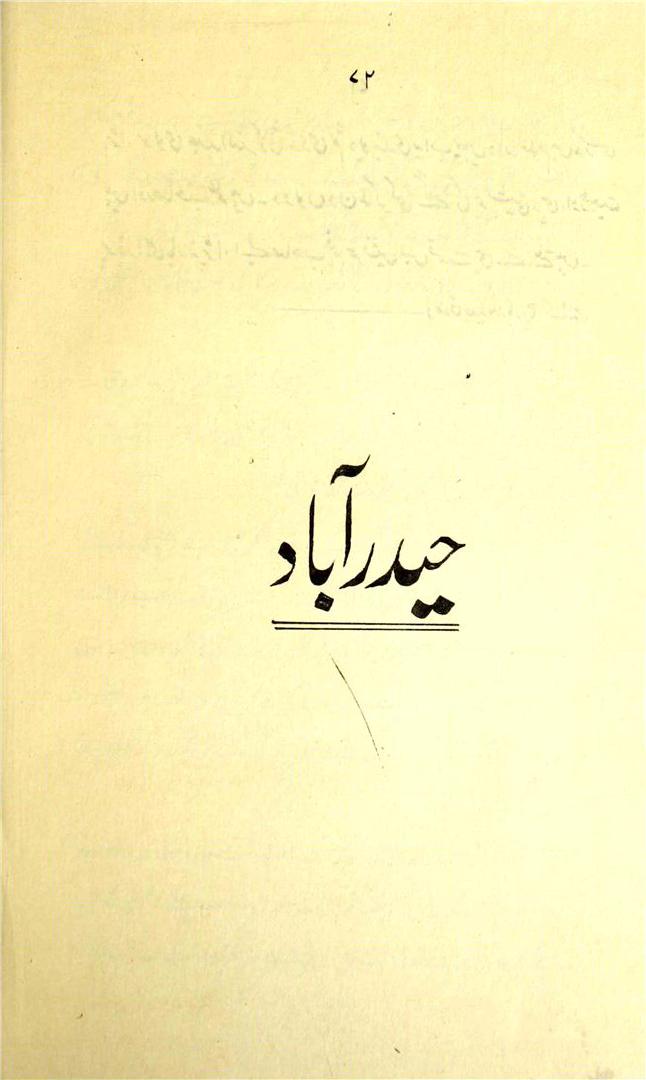 ۷۲
حیدرآباد